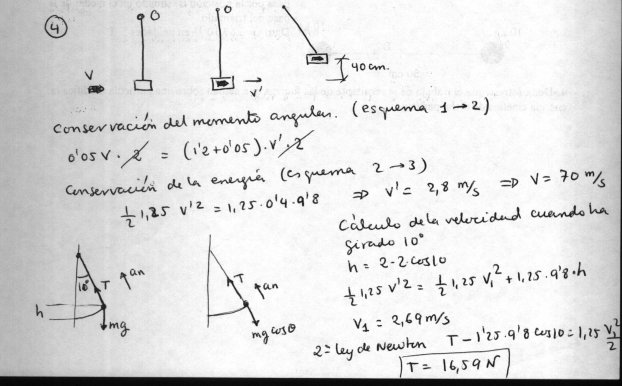 ④
O
O
40 cm.
V
V'
Conservación del momento angular. (esquema 1 → 2)
0'05 V · 2 = (1'2 + 0'05) · V' · 2
Conservación de la energía (esquema 2 → 3)
½ 1,25 V'² = 1,25 · 0'4 · 9'8 ⇒ V' = 2,8 m/s ⇒ V = 70 m/s
Cálculo de la velocidad cuando ha
girado 10°
h = 2 - 2 · cos10
½ 1,25 V'² = ½ 1,25 V₁² + 1,25 · 9'8 · h
V₁ = 2,69 m/s
2ª ley de Newton T - 1'25 · 9'8 cos10 = 1,25 V₁²/2
T = 16,59 N
10°
T
an
h
mg
T
an
mg cosθ